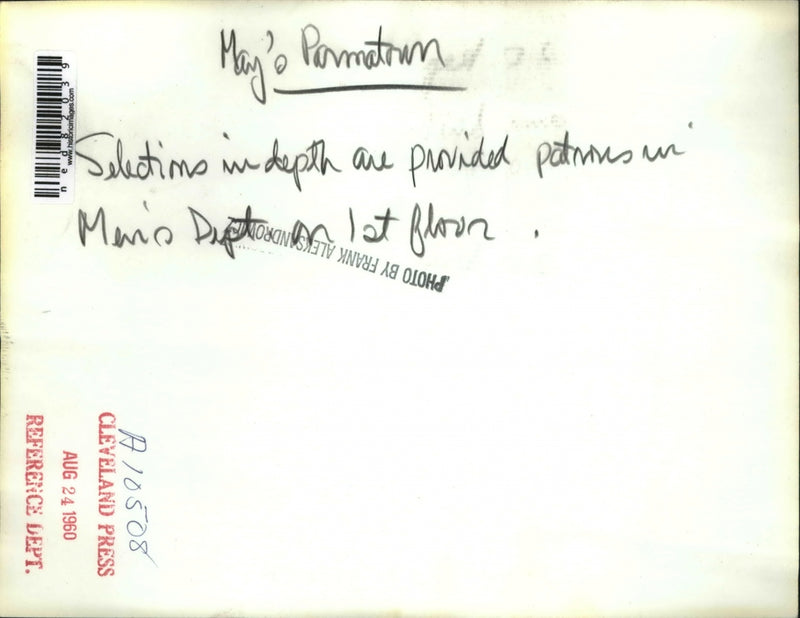 May's Parmatown
Selections in depth are provided patrons in
Men's Dept on 1st floor .
PHOTO BY FRANK ALEKSANDROWICZ
ned82039
www.historicimages.com
A10508
CLEVELAND PRESS
AUG 24 1960
REFERENCE DEPT.